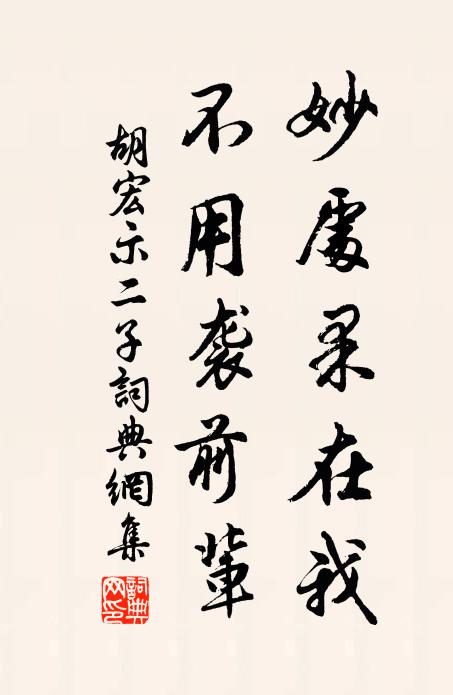 妙處果在我
不用袭前輩
胡宏示二子詞典網集
詞典网印